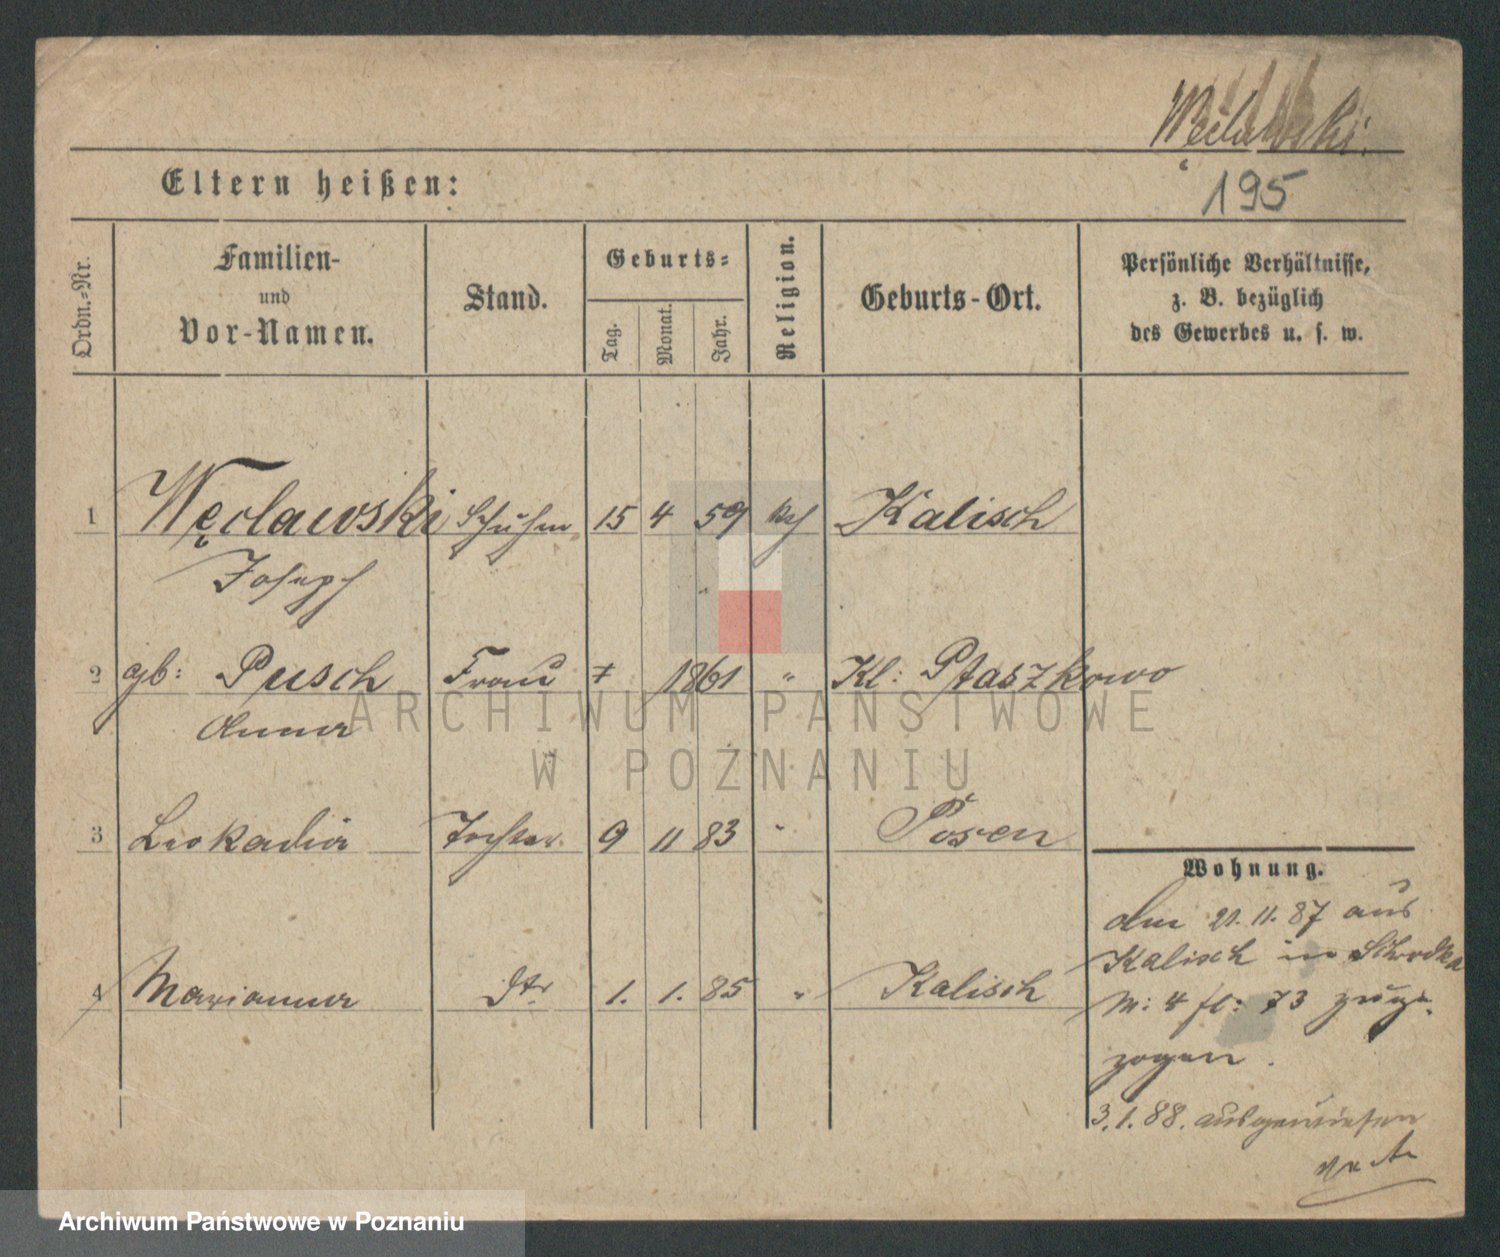 Węclawski.
195
Eltern heißen:
Ordn.-Nr.
Familien-
und
Vor-Namen.
Stand.
Geburts-
Tag.
Monat.
Jahr.
Religion.
Geburts-Ort.
Persönliche Verhältnisse,
z. B. bezüglich
des Gewerbes u. s. w.
1 Węclawski Schuhm. 15 4 59 Kalisch
Joseph
2 gb: Pusch Frau 1861 " Kl: Ptaszkowo
Anna
3 Leokadia Tochter 9 11 83 " Posen
4 Marianna dtr 1. 1. 85 " Kalisch
Wohnung.
Am 21. 11. 87 aus
Kalisch in Schrodka
N: 4 fl: 73 zuge-
zogen.
3.1.88. ausgewiesen
ARCHIWUM PAŃSTWOWE
W POZNANIU
Archiwum Państwowe w Poznaniu